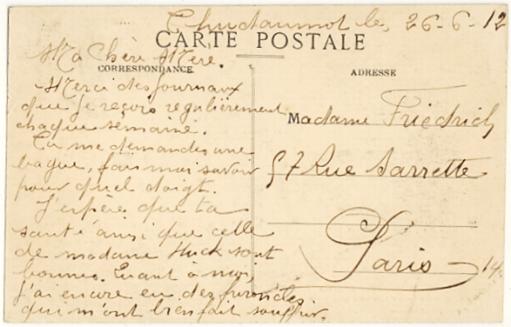 Thudaumot le, 26-6-12
CARTE POSTALE
Ma Chère Mère.
CORRESPONDANCE
Merci des journaux
que je reçois regulièrement
chaque semaine.
Tu me demandes une
bague, fais moi savoir
pour quel doigt.
J'espère que ta
santé ainsi que celle
de madame Huck sont
bonnes. Quant à moi,
j'ai encore eu des furoncles
qui m'ont bien fait souffrir.
ADRESSE
Madame Friedrich
57 Rue Sarrette
Paris 14.